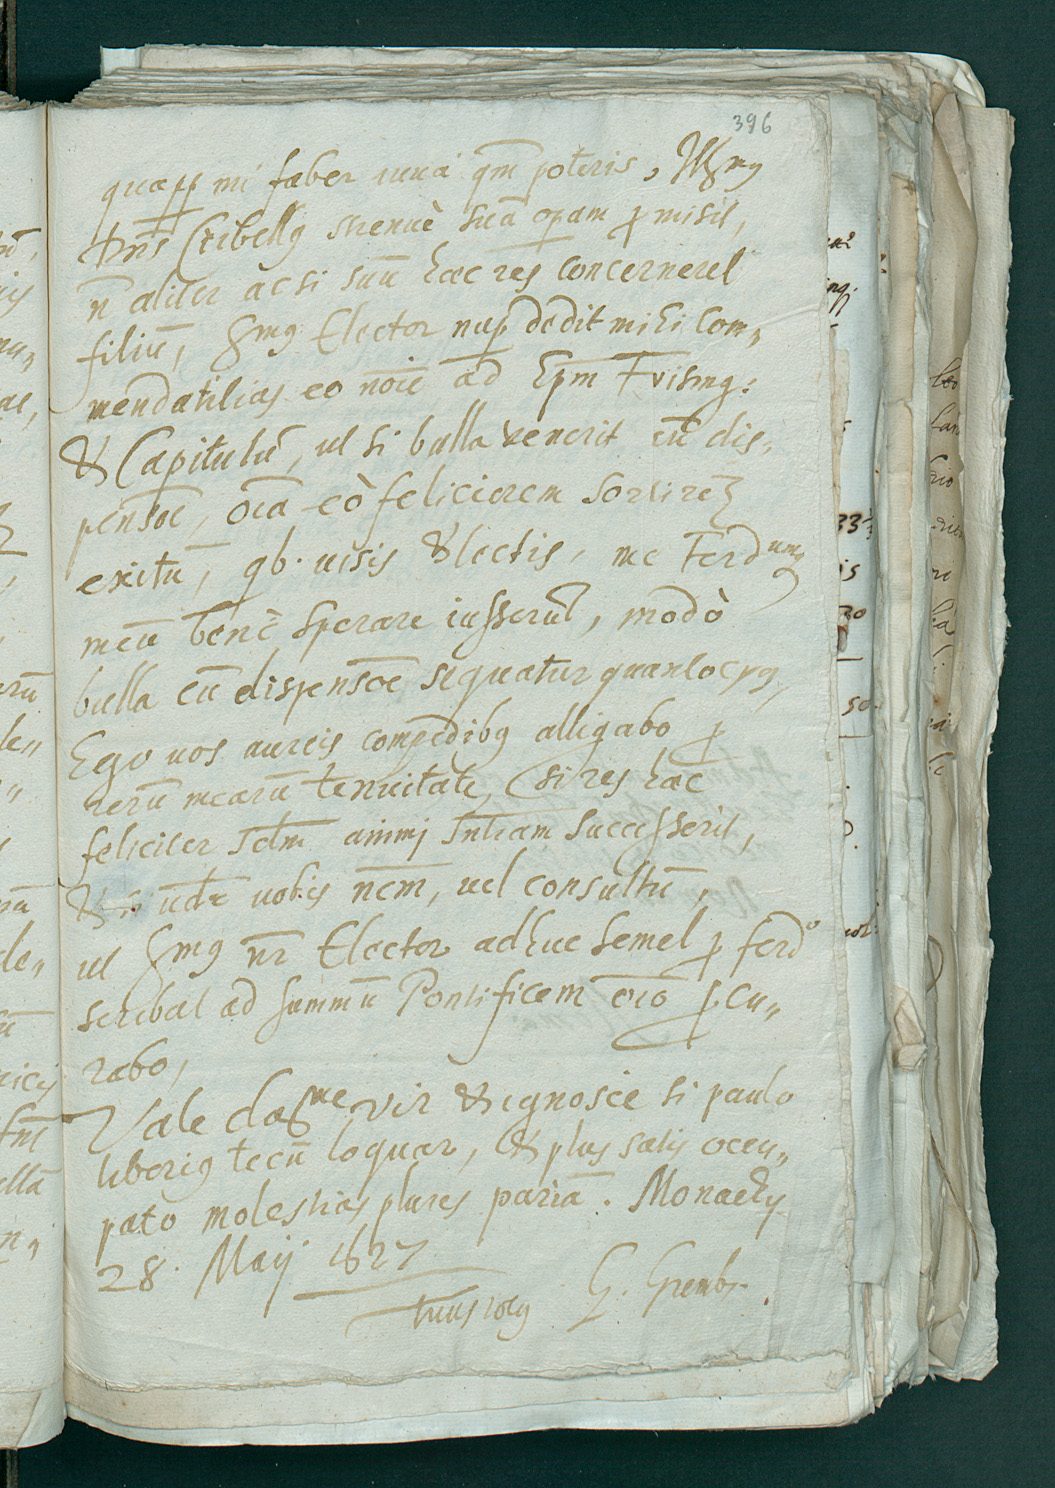 396
quapp mi faber iuua qm̄ poteris, Illmg
Dns̄ Cribellg strenuè suā opam p misit,
n̄ aliter ac si suū hac res concerneret
filiū, Smg Elector nup dedit mihi Com„
mendatitias eo nōie ad Epm̄ Frising:
& Capitulū, ut si bulla venerit cū dis„
pensōe, oīa eò feliciorem sortirez
exitū, qb. uisis & lectis, me Ferdumg
meū benè sperare iusserūt, modò
bulla cū dispensōe sequatur quantocyg,
Ego uos aureis compedibg alligabo p
rerū mearū tenuitate, si res hac
feliciter animj successerit,
& si uobis uel consultū,
ut Smg nr̄ Elector adhuc semel p ferdo
scribat ad summū Pontificem oīo pcu„
rabo,
Vale vir & ignosce si paulo
liberig tecū loquar, & plus satis occu„
pato molestias plures pariā. Monachy
28. Maij 1627
tuus totg G. Grembs.